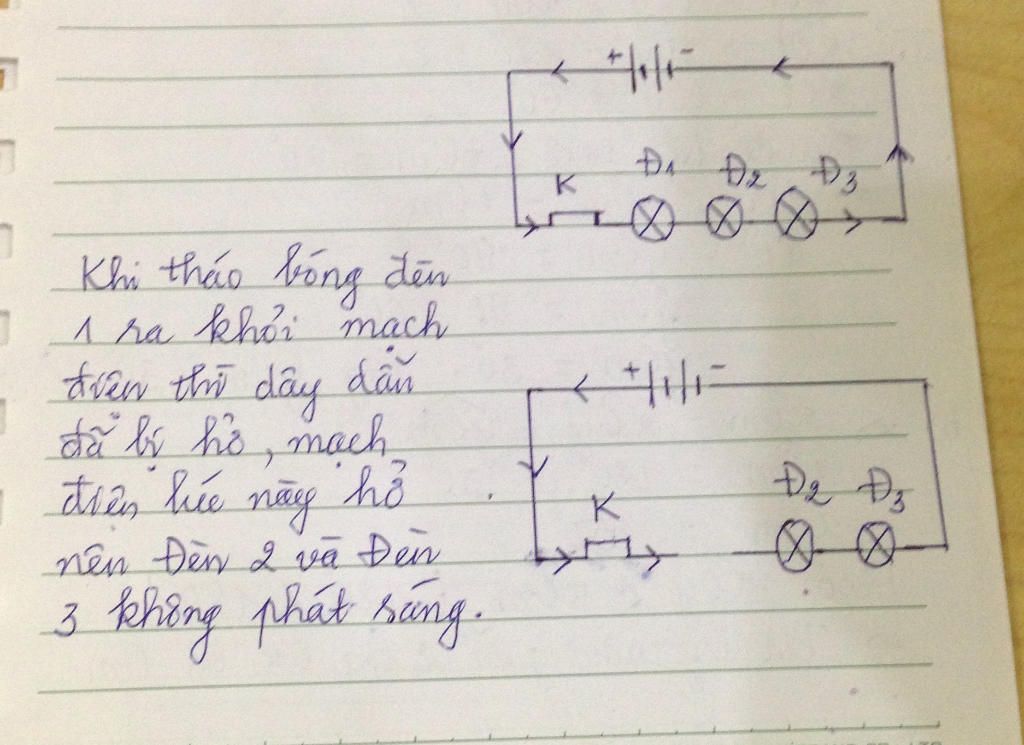 + -
K Đ1 Đ2 Đ3
Khi tháo bóng đèn
1 ra khỏi mạch
điện thì dây dẫn
đã bị hở, mạch
điện lúc này hở
nên Đèn 2 và Đèn
3 không phát sáng.
+ -
K Đ2 Đ3